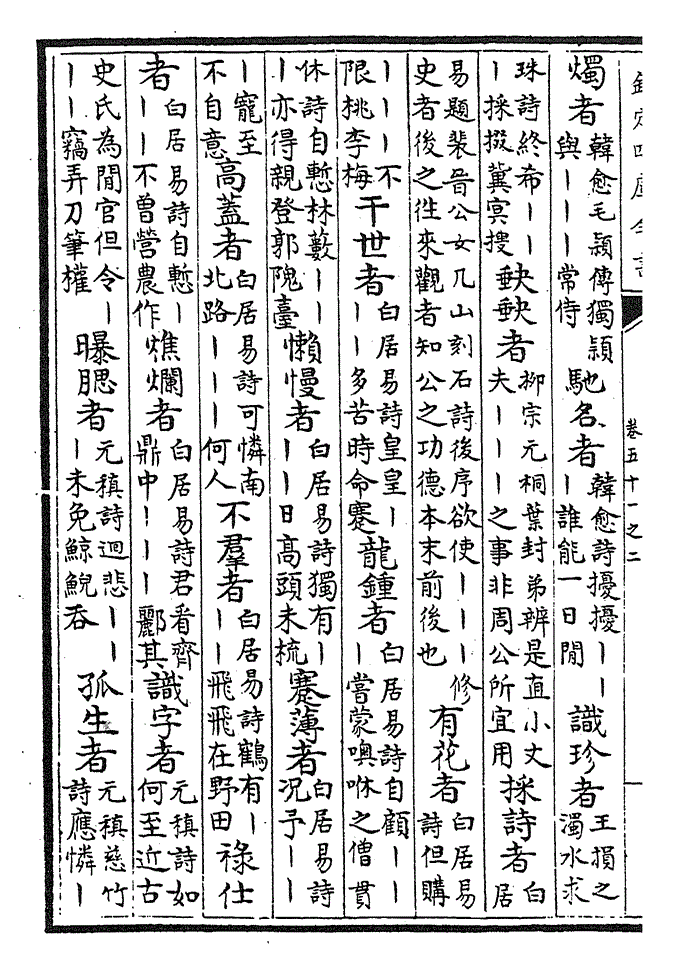 欽定四庫全書
卷五十一之二
燭者 韓愈毛穎傳獨穎與｜｜｜常侍 馳名者 韓愈詩擾擾｜｜｜誰能一日閒 識珍者 王損之濁水求
珠詩終希｜｜｜採掇冀冥搜 缺缺者 柳宗元桐葉封弟辨是直小丈夫｜｜｜之事非周公所宜用 採詩者 白居
易題裴晉公女几山刻石詩後序欲使｜｜｜修史者後之徃來觀者知公之功德本末前後也 有花者 白居易詩但購
｜｜｜不限桃李梅 干世者 白居易詩皇皇｜｜｜多苦時命蹇 龍鍾者 白居易詩自顧｜｜｜嘗蒙噢咻之僧貫
休詩自慙林藪｜｜｜亦得親登郭隗臺 懶慢者 白居易詩獨有｜｜｜日高頭未梳 蹇薄者 白居易詩况予｜｜
｜寵至不自意 高蓋者 白居易詩可憐南北路｜｜｜何人 不羣者 白居易詩鶴有｜｜｜飛飛在野田 祿仕
者 白居易詩自慙｜｜｜不曾營農作 燋爛者 白居易詩君看齊鼎中｜｜｜酈其 識字者 元稹詩如何至近古
史氏為閒官但令｜｜｜竊弄刀筆權 曝腮者 元稹詩迴悲｜｜｜未免鯨鯢吞 孤生者 元稹慈竹詩應憐｜